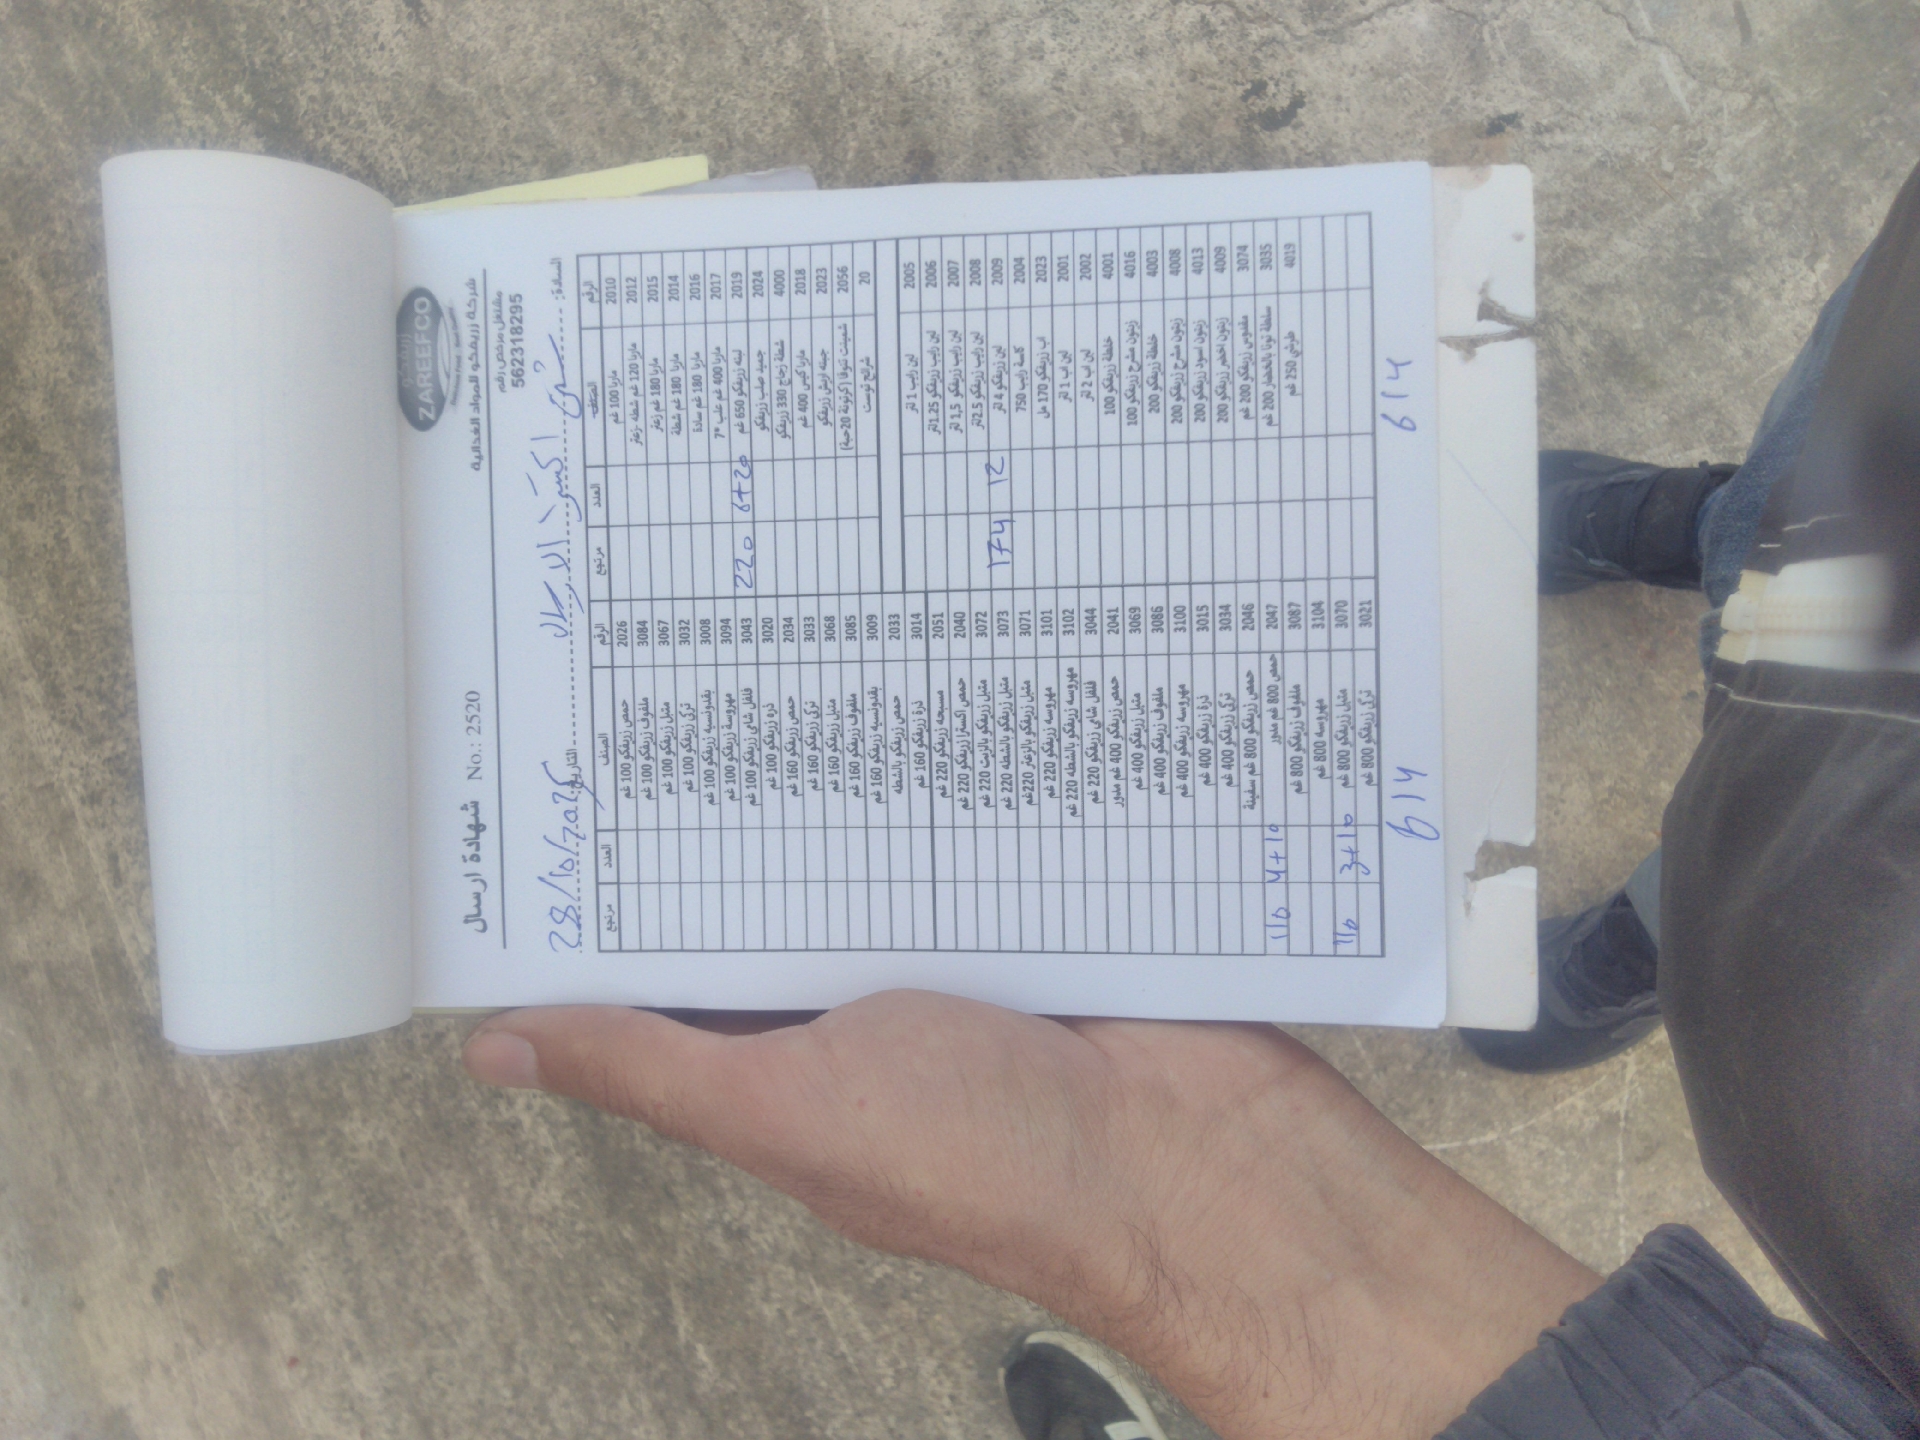 شركة زريفكو للمواد الغذائية
مشتغل مرخص رقم
562318295
ZAREEFCO
شهادة ارسال No.: 2520
السادة:
التاريخ: 28/10/2025
الرقم الصنف العدد مرتجع الرقم الصنف العدد مرتجع
2010 مارينا 100 غم 2026 حمص زريفكو 100 غم
2012 مارينا 120 غم شطة -زعتر 3084 ملفوف زريفكو 100 غم
2015 مارينا 180 غم زعتر 3067 متبل زريفكو 100 غم
2014 مارينا 180 غم شطة 3032 تركي زريفكو 100 غم
2016 مارينا 180 غم سادة 3008 بقدونسية زريفكو 100 غم
2017 مارينا 400 غم علب *7 3094 مهروسة زريفكو 100 غم
2019 لبنة زريفكو 650 غم 6+20 220 3043 فلفل شامي زريفكو 100 غم
2024 جميد صلب زريفكو 3020 ذرة زريفكو 100 غم
4000 شطة زجاج 330 زريفكو 2034 حمص زريفكو 160 غم
2018 مارينا كيس 400 غم 3033 تركي زريفكو 160 غم
2023 جبنة ارتش زريفكو 3068 متبل زريفكو 160 غم
2056 (كرتونة 20حبة) 3085 ملفوف زريفكو 160 غم
20 شرائح توست 3009 بقدونسيه زريفكو 160 غم
2033 حمص زريفكو بالشطه
3014 ذرة زريفكو 160 غم
2005 لبن رايب 1 لتر 2051 مسبحه زريفكو 220 غم
2006 لبن رايب زريفكو 1.25لتر 2040 حمص اكسترا زريفكو 220 غم
2007 لبن رايب زريفكو 1,5 لتر 3072 متبل زريفكو بالزيت 220 غم
2008 لبن رايب زريفكو 2.5لتر 3073 متبل زريفكو بالشطه 220 غم
2009 لبن زريفكو 4 لتر 12 174 3071 متبل زريفكو بالزعتر 220غم
2004 كاسة رايب 750 3101 مهروسه زريفكو 220 غم
2023 اب زريفكو 170 مل 3102 مهروسه زريفكو بالشطه 220 غم
2001 لبن اب 1 لتر 3044 فلفل شامي زريفكو 220 غم
2002 لبن اب 2 لتر 2041 حمص زريفكو 400 غم مدور
4001 خلطة زريفكو 100 3069 متبل زريفكو 400 غم
4016 زيتون مشرح زريفكو 100 3086 ملفوف زريفكو 400 غم
4003 خلطة زريفكو 200 3100 مهروسه زريفكو 400 غم
4008 زيتون مشرح زريفكو 200 3015 ذرة زريفكو 400 غم
4013 زيتون اسود زريفكو 200 3034 تركي زريفكو 400 غم
4009 زيتون اخضر زريفكو 200 2046 حمص زريفكو 800 غم سفينة
3074 مقدوس زريفكو 200 غم 2047 حمص 800 غم مدور 4+10 110
3035 سلطة تونا بالخضار 200 غم 3087 ملفوف زريفكو 800 غم
4019 طرشي 250 غم 3104 مهروسه 800 غم
3070 متبل زريفكو 800 غم 3+10
3021 تركي زريفكو 800 غم
614 614